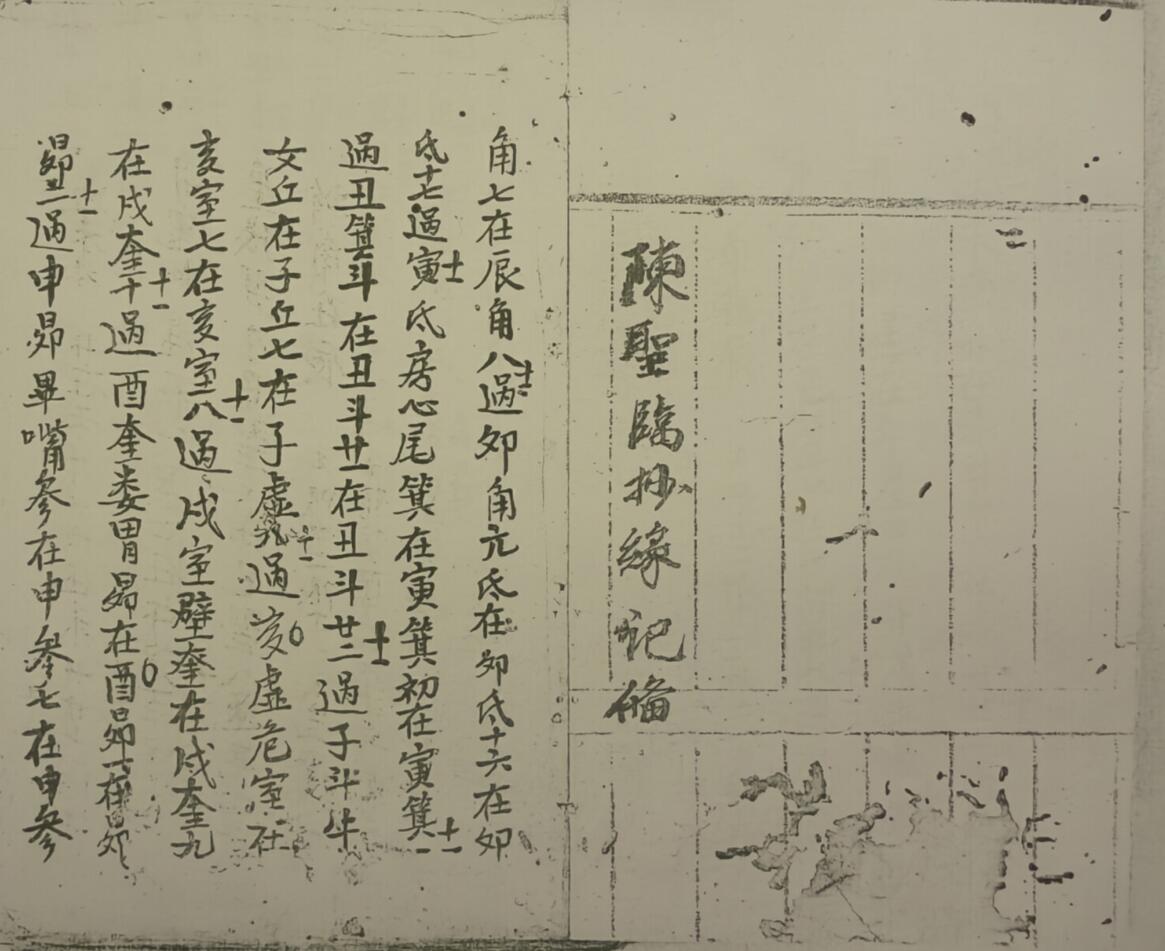 陳聖臨抄緣記俻
角七在辰角八過夘角亢氐在夘氐十六在夘
氐十七過寅氐房心尾箕在寅箕初在寅箕一
過丑箕斗在丑斗廿一在丑斗廿二過子斗牛
女丘在子丘七在子虛九過亥虛危室在
亥室七在亥室八過戌室壁奎在戌奎九
在戌奎十過酉奎娄胃昴在酉昴一在
昴二過申昴畢嘴參在申參七在申參